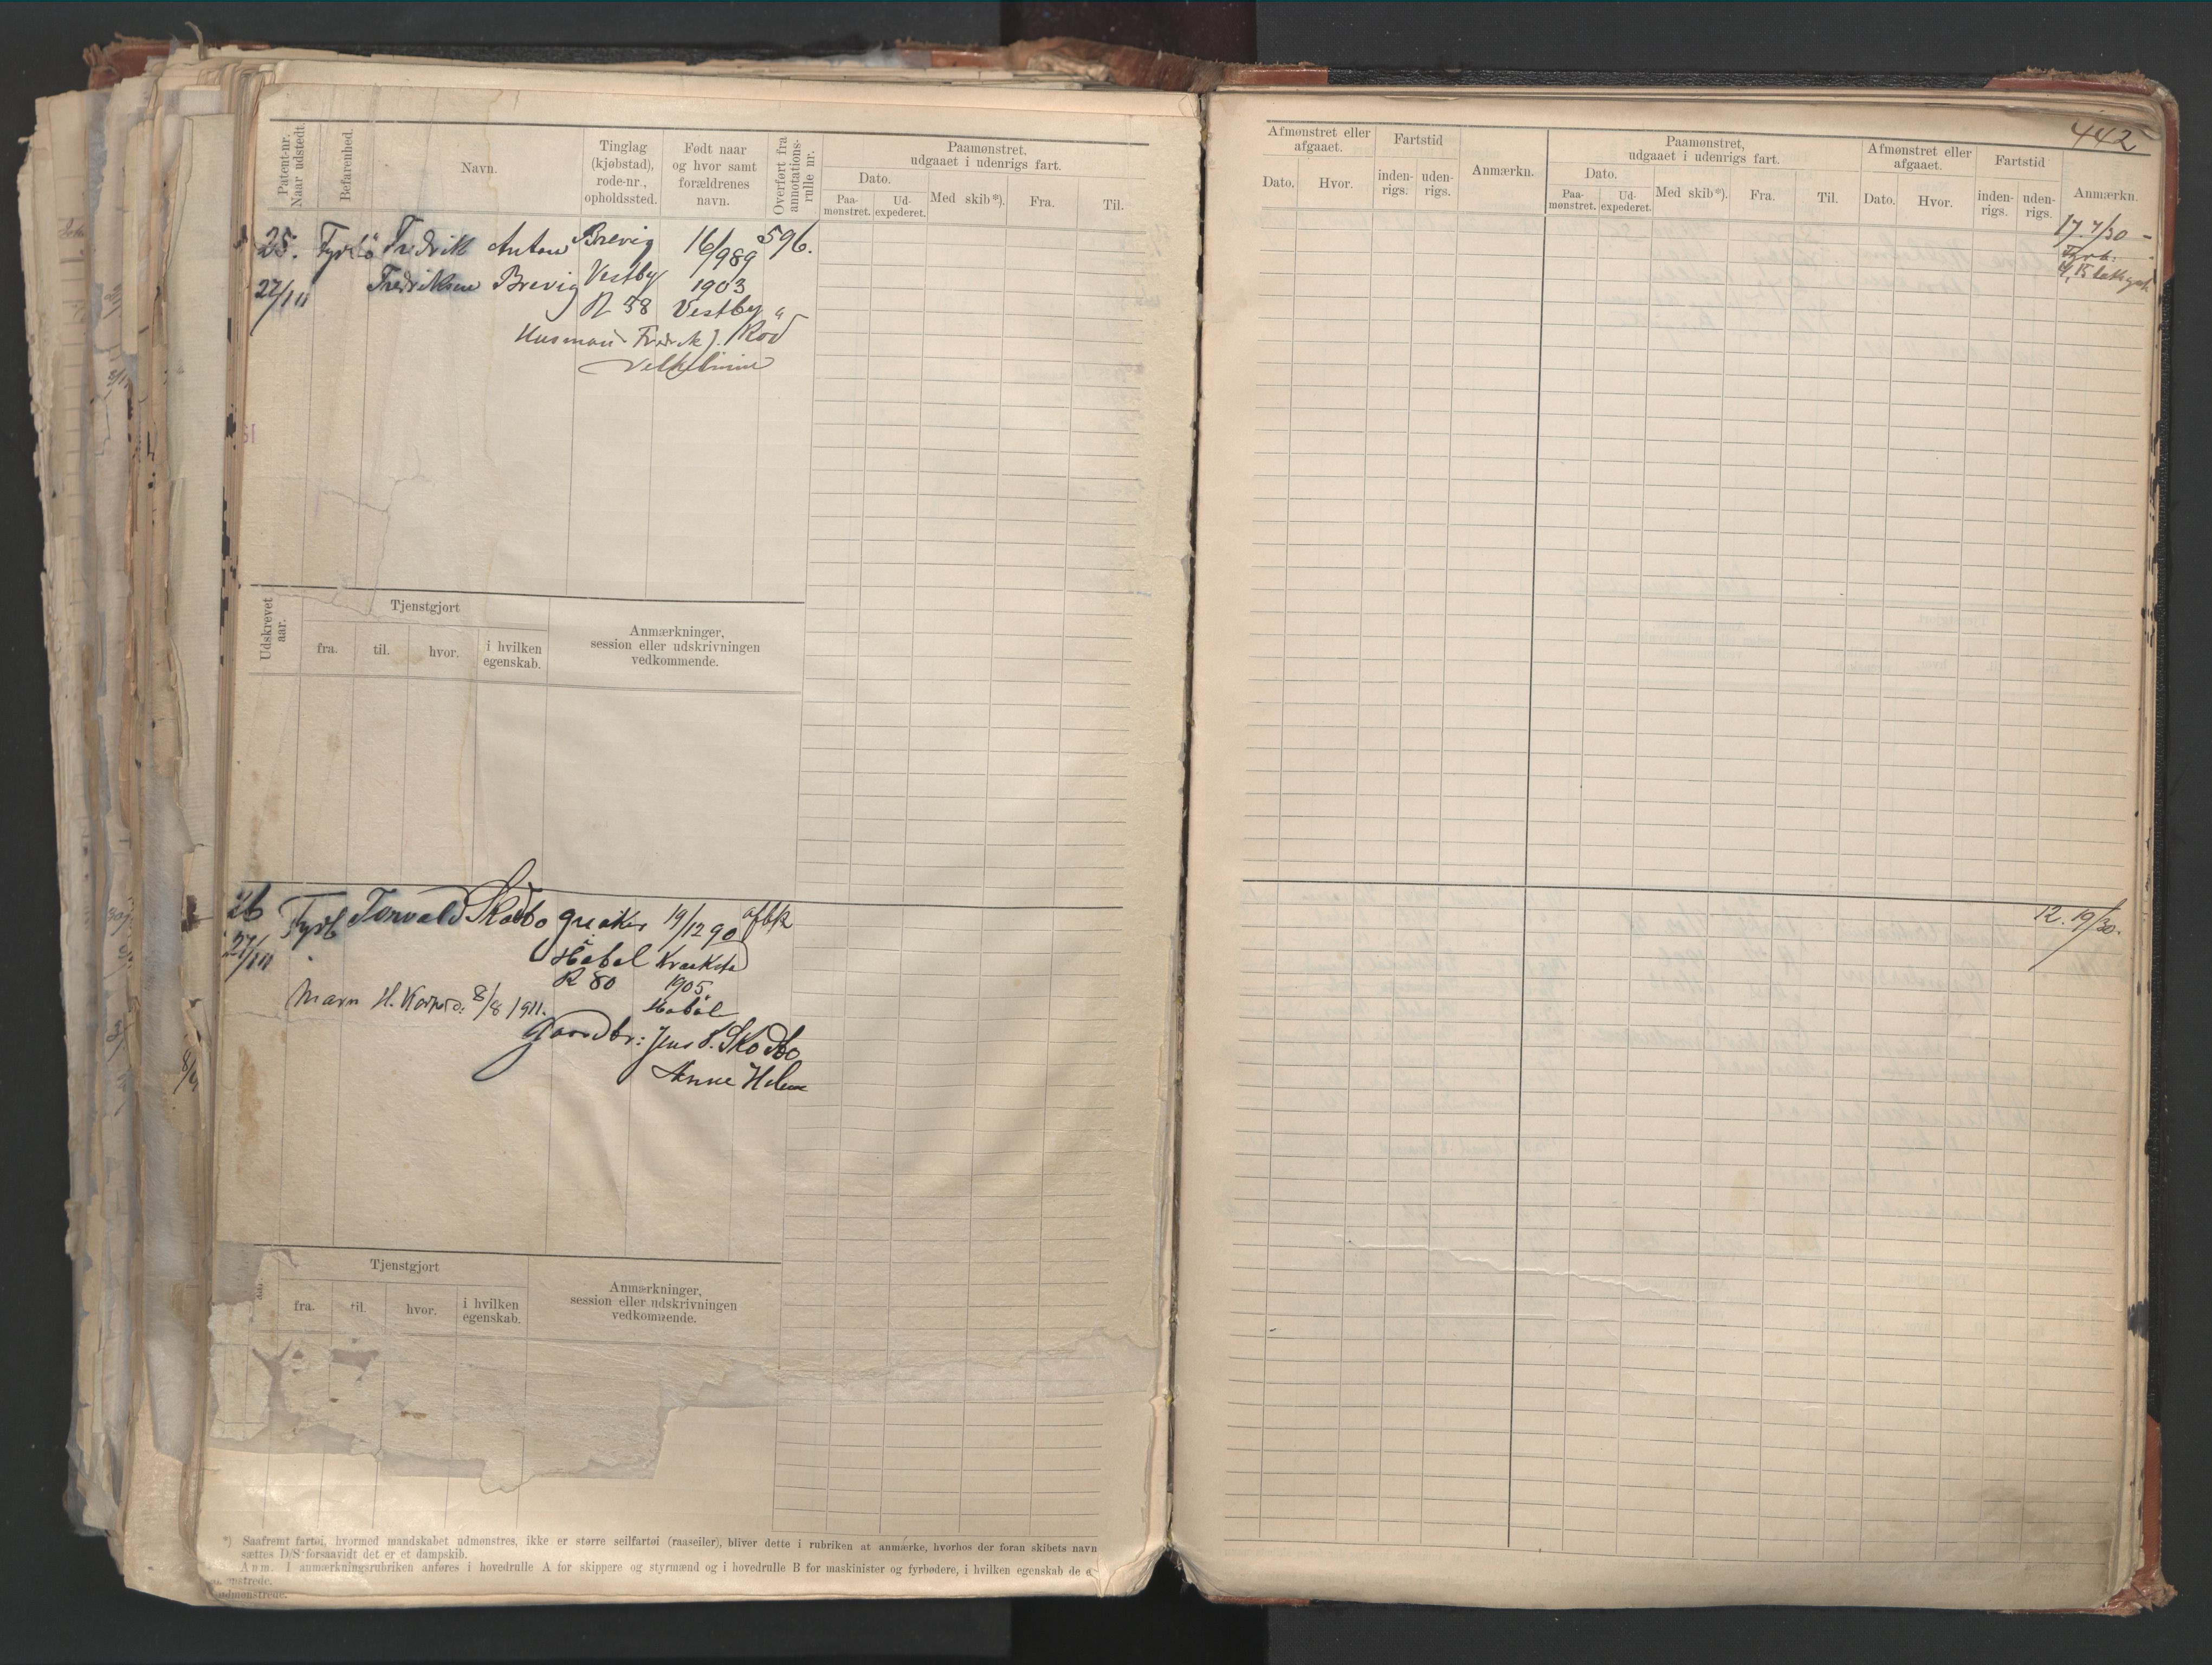 442
Patent-nr. Naar udstedt.
Befarenhed.
Navn.
Tinglag (kjøbstad), rode-nr., opholdssted.
Født naar og hvor samt forældrenes navn.
Overført fra annotations-rulle nr.
Paamønstret, udgaaet i udenrigs fart.
Dato.
Paa-mønstret.
Ud-expederet.
Med skib*).
Fra.
Til.
25.
Fredrik Anton Brevig 16/9 89 596.
27/10 Fredriksen Brevig Vestby 1903
R 38 Vestby
Husmand Fredrik J. Rød
Udskrevet aar.
Tjenstgjort
fra.
til.
hvor.
i hvilken egenskab.
Anmærkninger, session eller udskrivningen vedkommende.
26 Fyrb Torvald Skodbo 19/12 90 afbk
27/10 Høbøl Kraakstad
R 80 1905
8/8 1911. Høbøl
Gaardbr: Jens S. Skodbo
Anne Helene
Tjenstgjort
fra.
til.
hvor.
i hvilken egenskab.
Anmærkninger, session eller udskrivningen vedkommende.
*) Saafremt fartøi, hvormed mandskabet udmønstres, ikke er større seilfartøi (raaseiler), bliver dette i rubriken at anmærke, hvorhos der foran skibets navn
sættes D/S forsaavidt det er et dampskib.
Anm. I anmærkningsrubriken anføres i hovedrulle A for skippere og styrmænd og i hovedrulle B for maskinister og fyrbødere, i hvilken egenskab de
udmønstrede.
Afmønstret eller afgaaet.
Dato.
Hvor.
Fartstid
inden-rigs.
uden-rigs.
Anmærkn.
Paamønstret, udgaaet i udenrigs fart.
Dato.
Paa-mønstret.
Ud-expederet.
Med skib*).
Fra.
Til.
Afmønstret eller afgaaet.
Dato.
Hvor.
Fartstid
inden-rigs.
uden-rigs.
Anmærkn.
17 7/30
Fyrb.
12. 19/30.